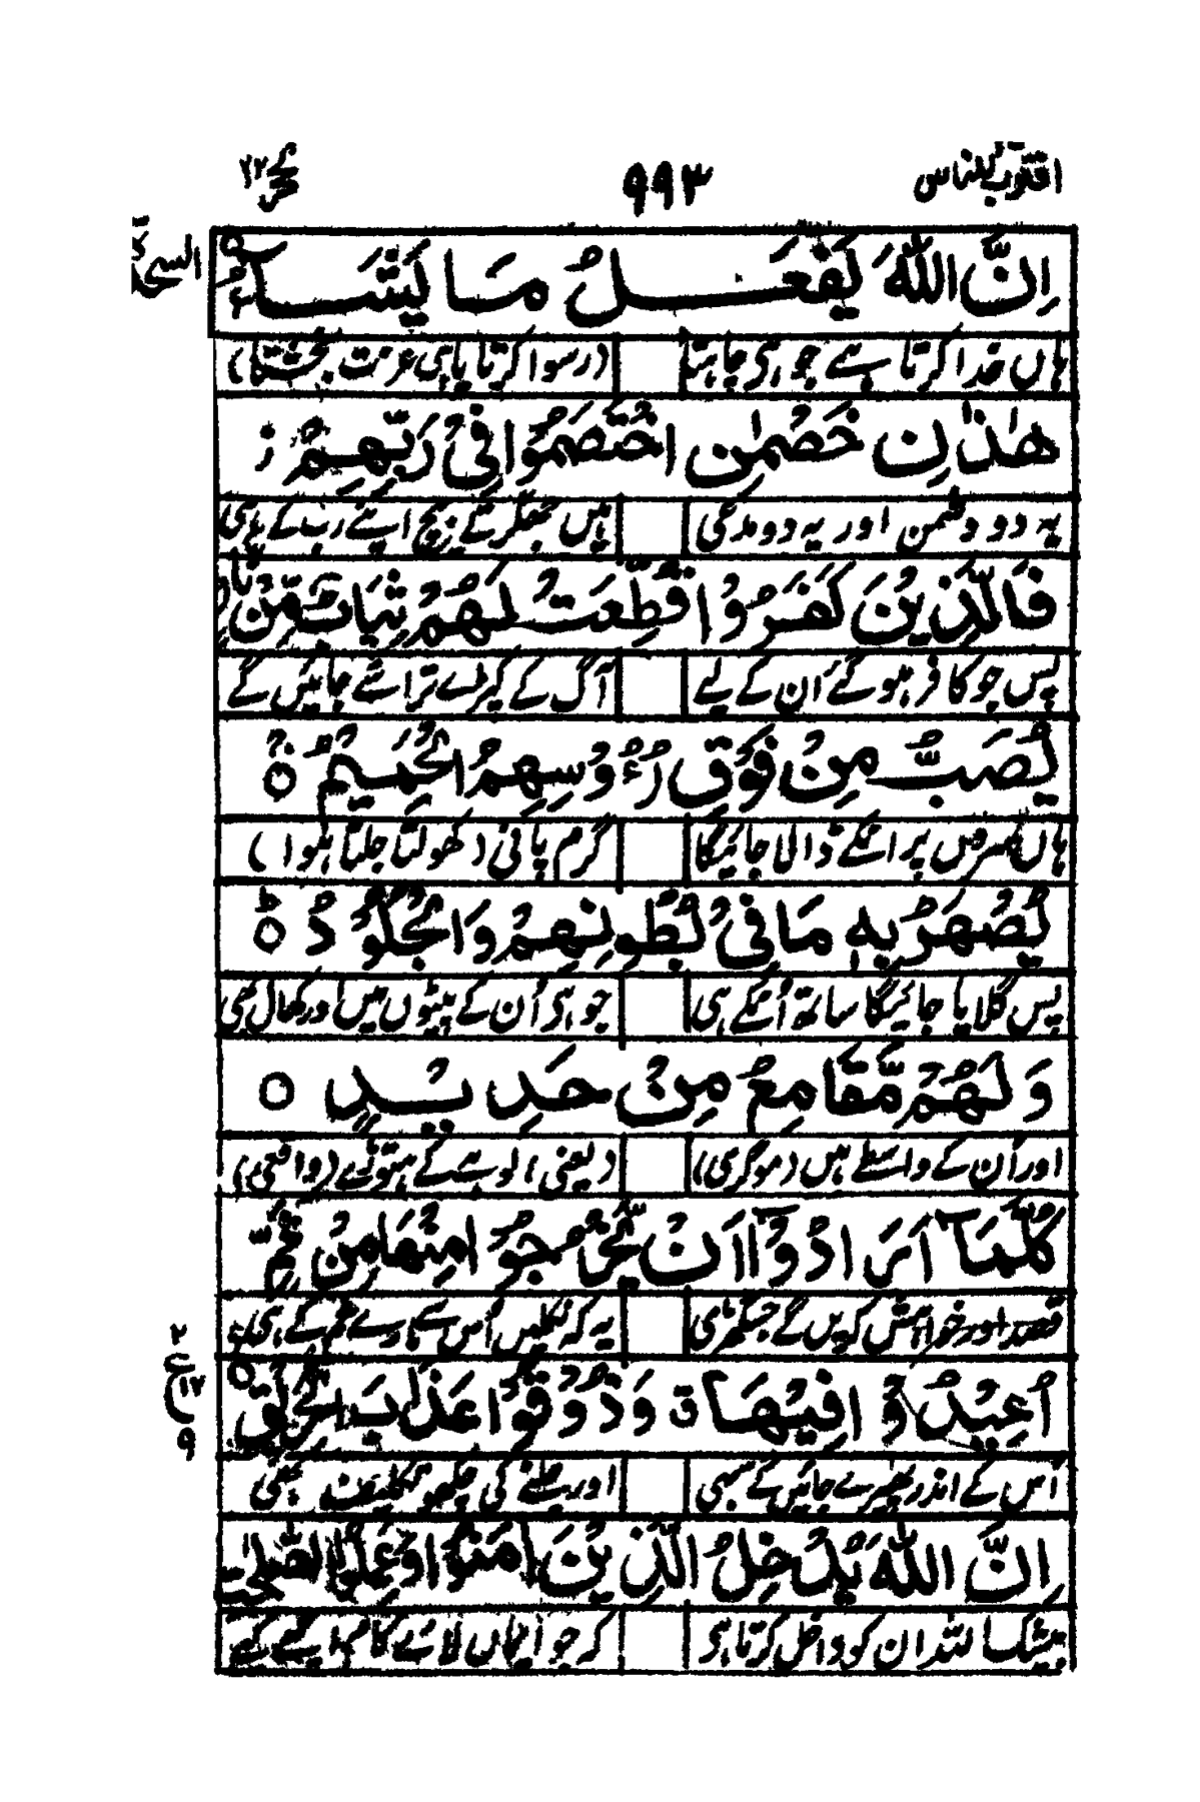 اقترب للناس ۹۹۳ حج ۲۲
اِنَّ اللّٰهَ يَفْعَلُ مَا يَشَآءُ
ہاں خدا کرتا ہے جو ہی چاہتا (رسوا کرتا یا ہی عزت بخشتا)
السجدة
هٰذٰنِ خَصْمٰنِ اخْتَصَمُوْا فِيْ رَبِّهِمْ ز
یہ دو دشمن اور یہ دو مدعی ہیں جھگڑتے بیچ اپنے رب کے ہی
فَالَّذِيْنَ كَفَرُوْا قُطِّعَتْ لَهُمْ ثِيَابٌ مِّنْ نَّارٍ
پس جو کافر ہو گئے اُن کے لیے آگ کے کپڑے تراشے جائیں گے
يُصَبُّ مِنْ فَوْقِ رُءُوْسِهِمُ الْحَمِيْمُ ۝
ہاں سروں پر انکے ڈالا جائیگا گرم پانی (کھولتا جلتا ہوا)
يُصْهَرُ بِهٖ مَا فِيْ بُطُوْنِهِمْ وَالْجُلُوْدُ ۝
پس گلایا جائیگا ساتھ اُسکے ہی جو ہی اُن کے پیٹوں میں اور کھال بھی
وَلَهُمْ مَّقَامِعُ مِنْ حَدِيْدٍ ۝
اور اُن کے واسطے ہیں (موگری) (یعنی) لوہے کے ہتوڑے (واقعی)
كُلَّمَآ اَرَادُوْٓا اَنْ يَّخْرُجُوْا مِنْهَا مِنْ غَمٍّ
قصد اور خواہش کریں گے جسگھڑی یہ کہ نکلیں اُس سے مارے غم کے ہی
اُعِيْدُوْا فِيْهَا ق وَذُوْقُوْا عَذَابَ الْحَرِيْقِ ۝
۲
ع
۱۲
۹
اُس کے اندر پھیرے جائیں گے سبھی اور جلنے کی چکھو تکلیف بھی
اِنَّ اللّٰهَ يُدْخِلُ الَّذِيْنَ اٰمَنُوْا وَعَمِلُوا الصّٰلِحٰتِ
بیشک اللہ ان کو داخل کرتا ہی کہ جو ایماں لائے کام اچھے کیے